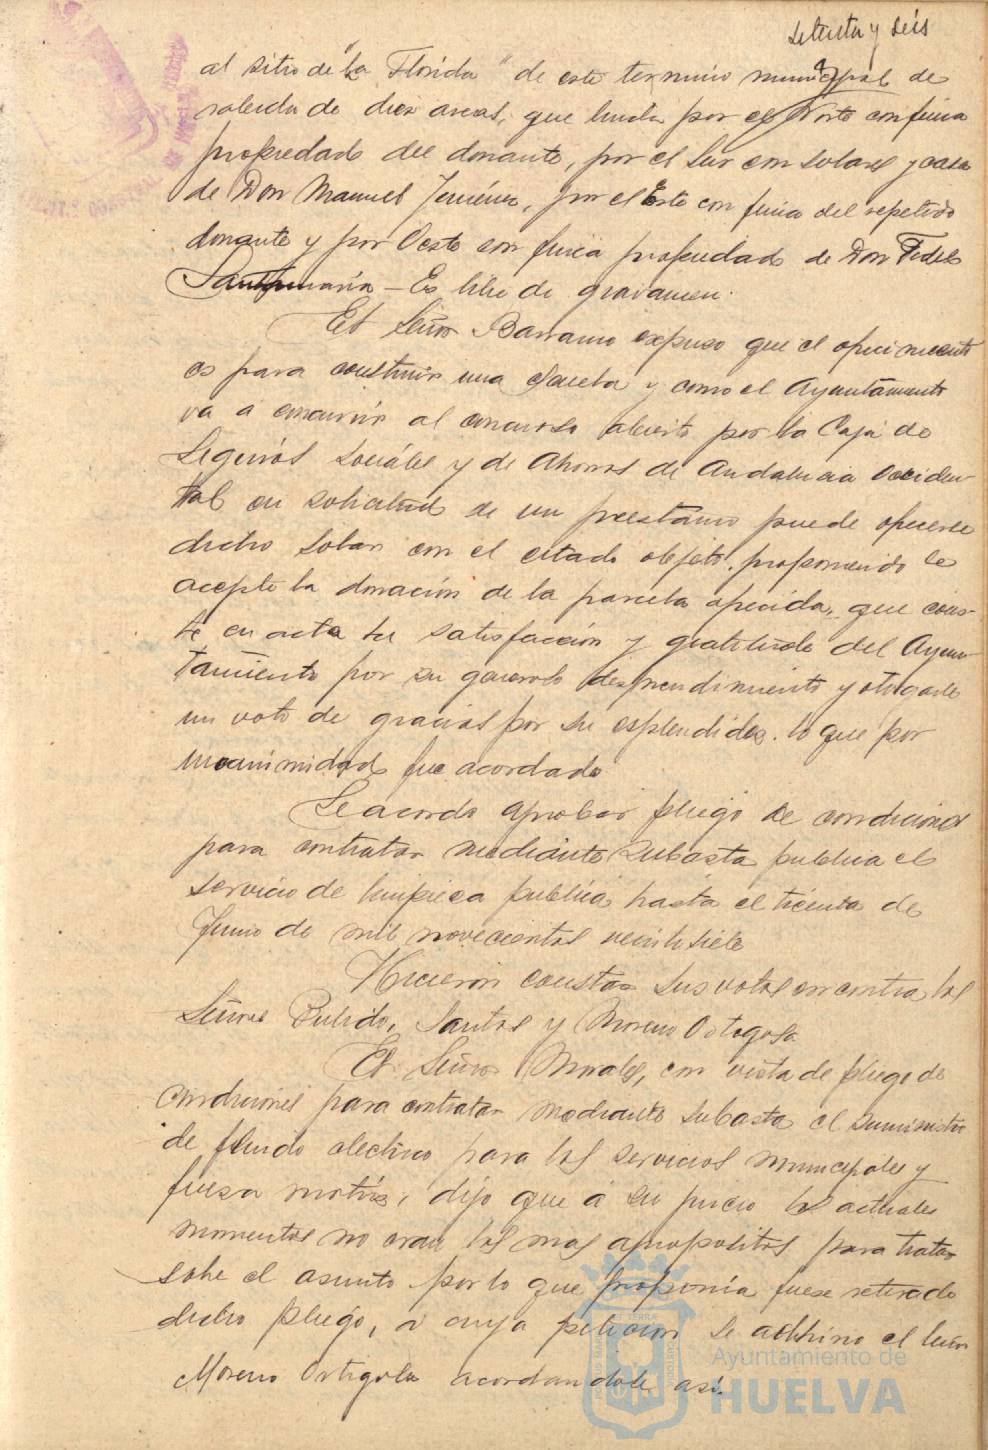 setenta y seis
al sitio de "La Florida" de este termino municipal de
cabida de diez areas, que linda por el Norte con finca
propiedad del donante, por el Sur con solares y casa
de Don Manuel Jiménez, por el Este con finca del repetido
donante y por Oeste con finca propiedad de Don Fidel
Santamaría - Es libre de gravamen.
El Señor Barranco expuso que el ofrecimiento
es para construir una escuela y como el Ayuntamiento
va a concurrir al concurso abierto por la Caja de
Seguros Sociales y de Ahorros de Andalucia Occiden-
tal en solicitud de un prestamo puede ofrecerse
dicho solar con el citado objeto, proponiendo se
acepte la donación de la parcela ofrecida, que cons-
te en acta la satisfacción y gratitud del Ayun-
tamiento por su generoso desprendimiento y otorgarle
un voto de gracias por su esplendidez. lo que por
unanimidad fue acordado
Se acordo aprobar pliego de condiciones
para contratar mediante subasta publica el
servicio de limpieza publica hasta el treinta de
Junio de mil novecientos veintisiete
Hicieron constar sus votos en contra los
Señores Pulido, Santos y Moreno Ortogosa
El Señor Morales, con vista de pliego de
condiciones para contratar mediante subasta el suministro
de fluido electrico para los servicios municipales y
fuerza motriz, dijo que á su juicio los actuales
momentos no eran los mas apropositos para tratar
sobre el asunto por lo que proponia fuese retirado
dicho pliego, a cuya peticion se adhirio el Señor
Moreno Ortigosa acordandole asi.
Ayuntamiento de
HUELVA